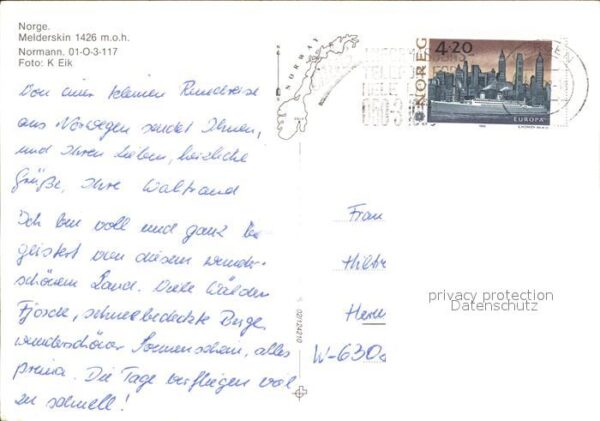 Norge.
Melderskin 1426 m.o.h.
Normann, 01-O-3-117
Foto: K Eik
NORWAY
NOREG
4·20
EUROPA
Von einer kleinen Rundreise
aus Norwegen sendet Ihnen,
und Ihren Lieben, herzliche
Grüße, Ihre Waltraud
Ich bin voll und ganz be-
geistert von diesem wunder-
schönen Land. Viele Wälder
Fjorde, schneebedeckte Berge,
wunderschöner Sonnenschein, alles
prima. Die Tage verfliegen viel
zu schnell!
Frau
Herrn
W-630
02/124210
privacy protection
Datenschutz